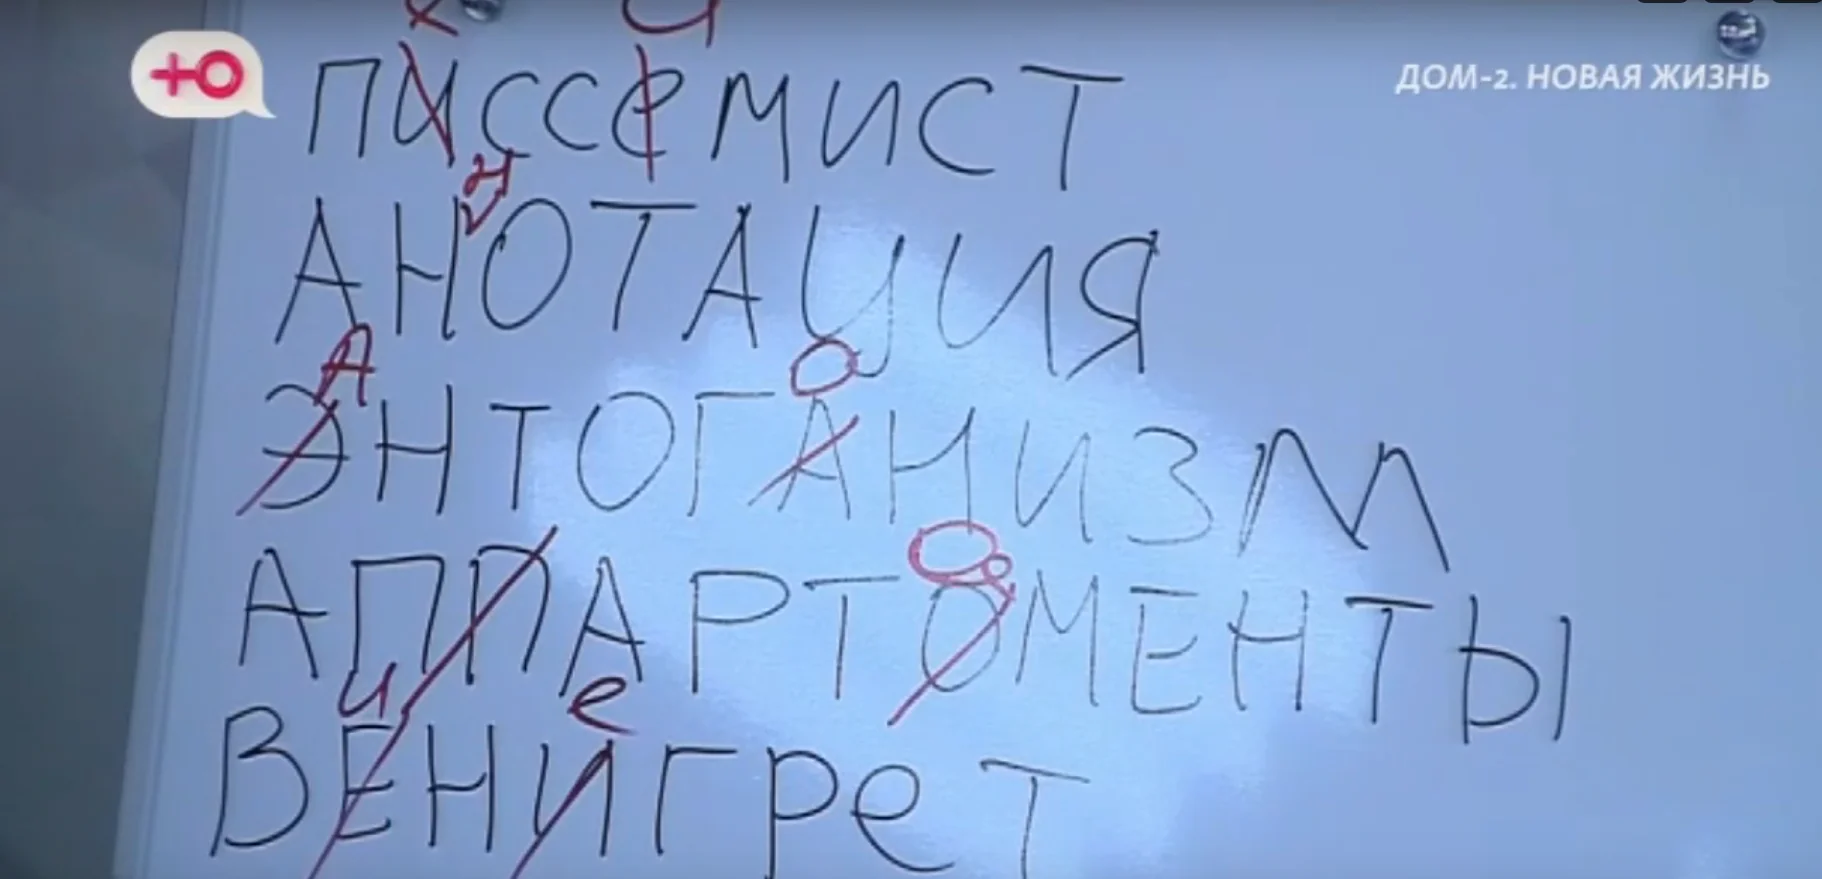 е и
Ю
ДОМ-2. НОВАЯ ЖИЗНЬ
ПИССЕМИСТ
Н
АНОТАЦИЯ
А О
ЭНТОГАНИЗМ
О
АППАРТОМЕНТЫ
и е
ВЕНИГРЕТ